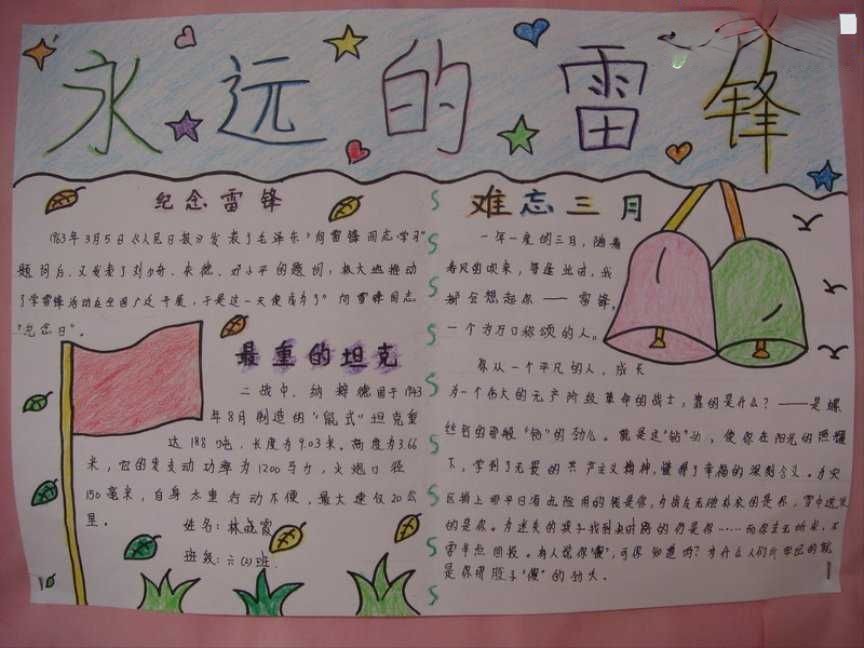 永远的雷锋
纪念雷锋
1963年3月5日《人民日报》发表了毛泽东"向雷锋同志学习"
题词后,又发表了刘少奇、朱德、邓小平的题词,极大地推动
了学雷锋活动在全国广泛开展,于是这一天便成为了"向雷锋同志
"纪念日"。
最重的坦克
二战中,纳粹德国于1943
年8月制造的"鼠式"坦克重
达188吨,长度为9.03米。高度为3.66
米,它的发动功率为1200马力,火炮口径
150毫米,自身太重行动不便,最大速仅20公
里。
姓名:林晓霞
班级:六(2)班
难忘三月
一年一度的三月,随着
春风的吹来,每逢此时,我
都会想起你——雷锋,
一个为万口称颂的人。
你从一个平凡的人,成长
为一个伟大的无产阶级革命的战士,靠的是什么?——是螺
丝钉的那般"钻"的劲儿。就是这"钻"劲,使你在阳光的照耀
下,学到了无畏的共产主义精神,懂得了幸福的深刻含义。为灾
区捐上那平日省点应用的钱是你,为战友无微不至的是你,雪中送炭
的是你。为迷失的孩子找到乡时路的仍是你……而你去无所求,不
需半点回报。有人说你"傻",可你知道吗?为什么人们
是你那股子"傻"的劲头。